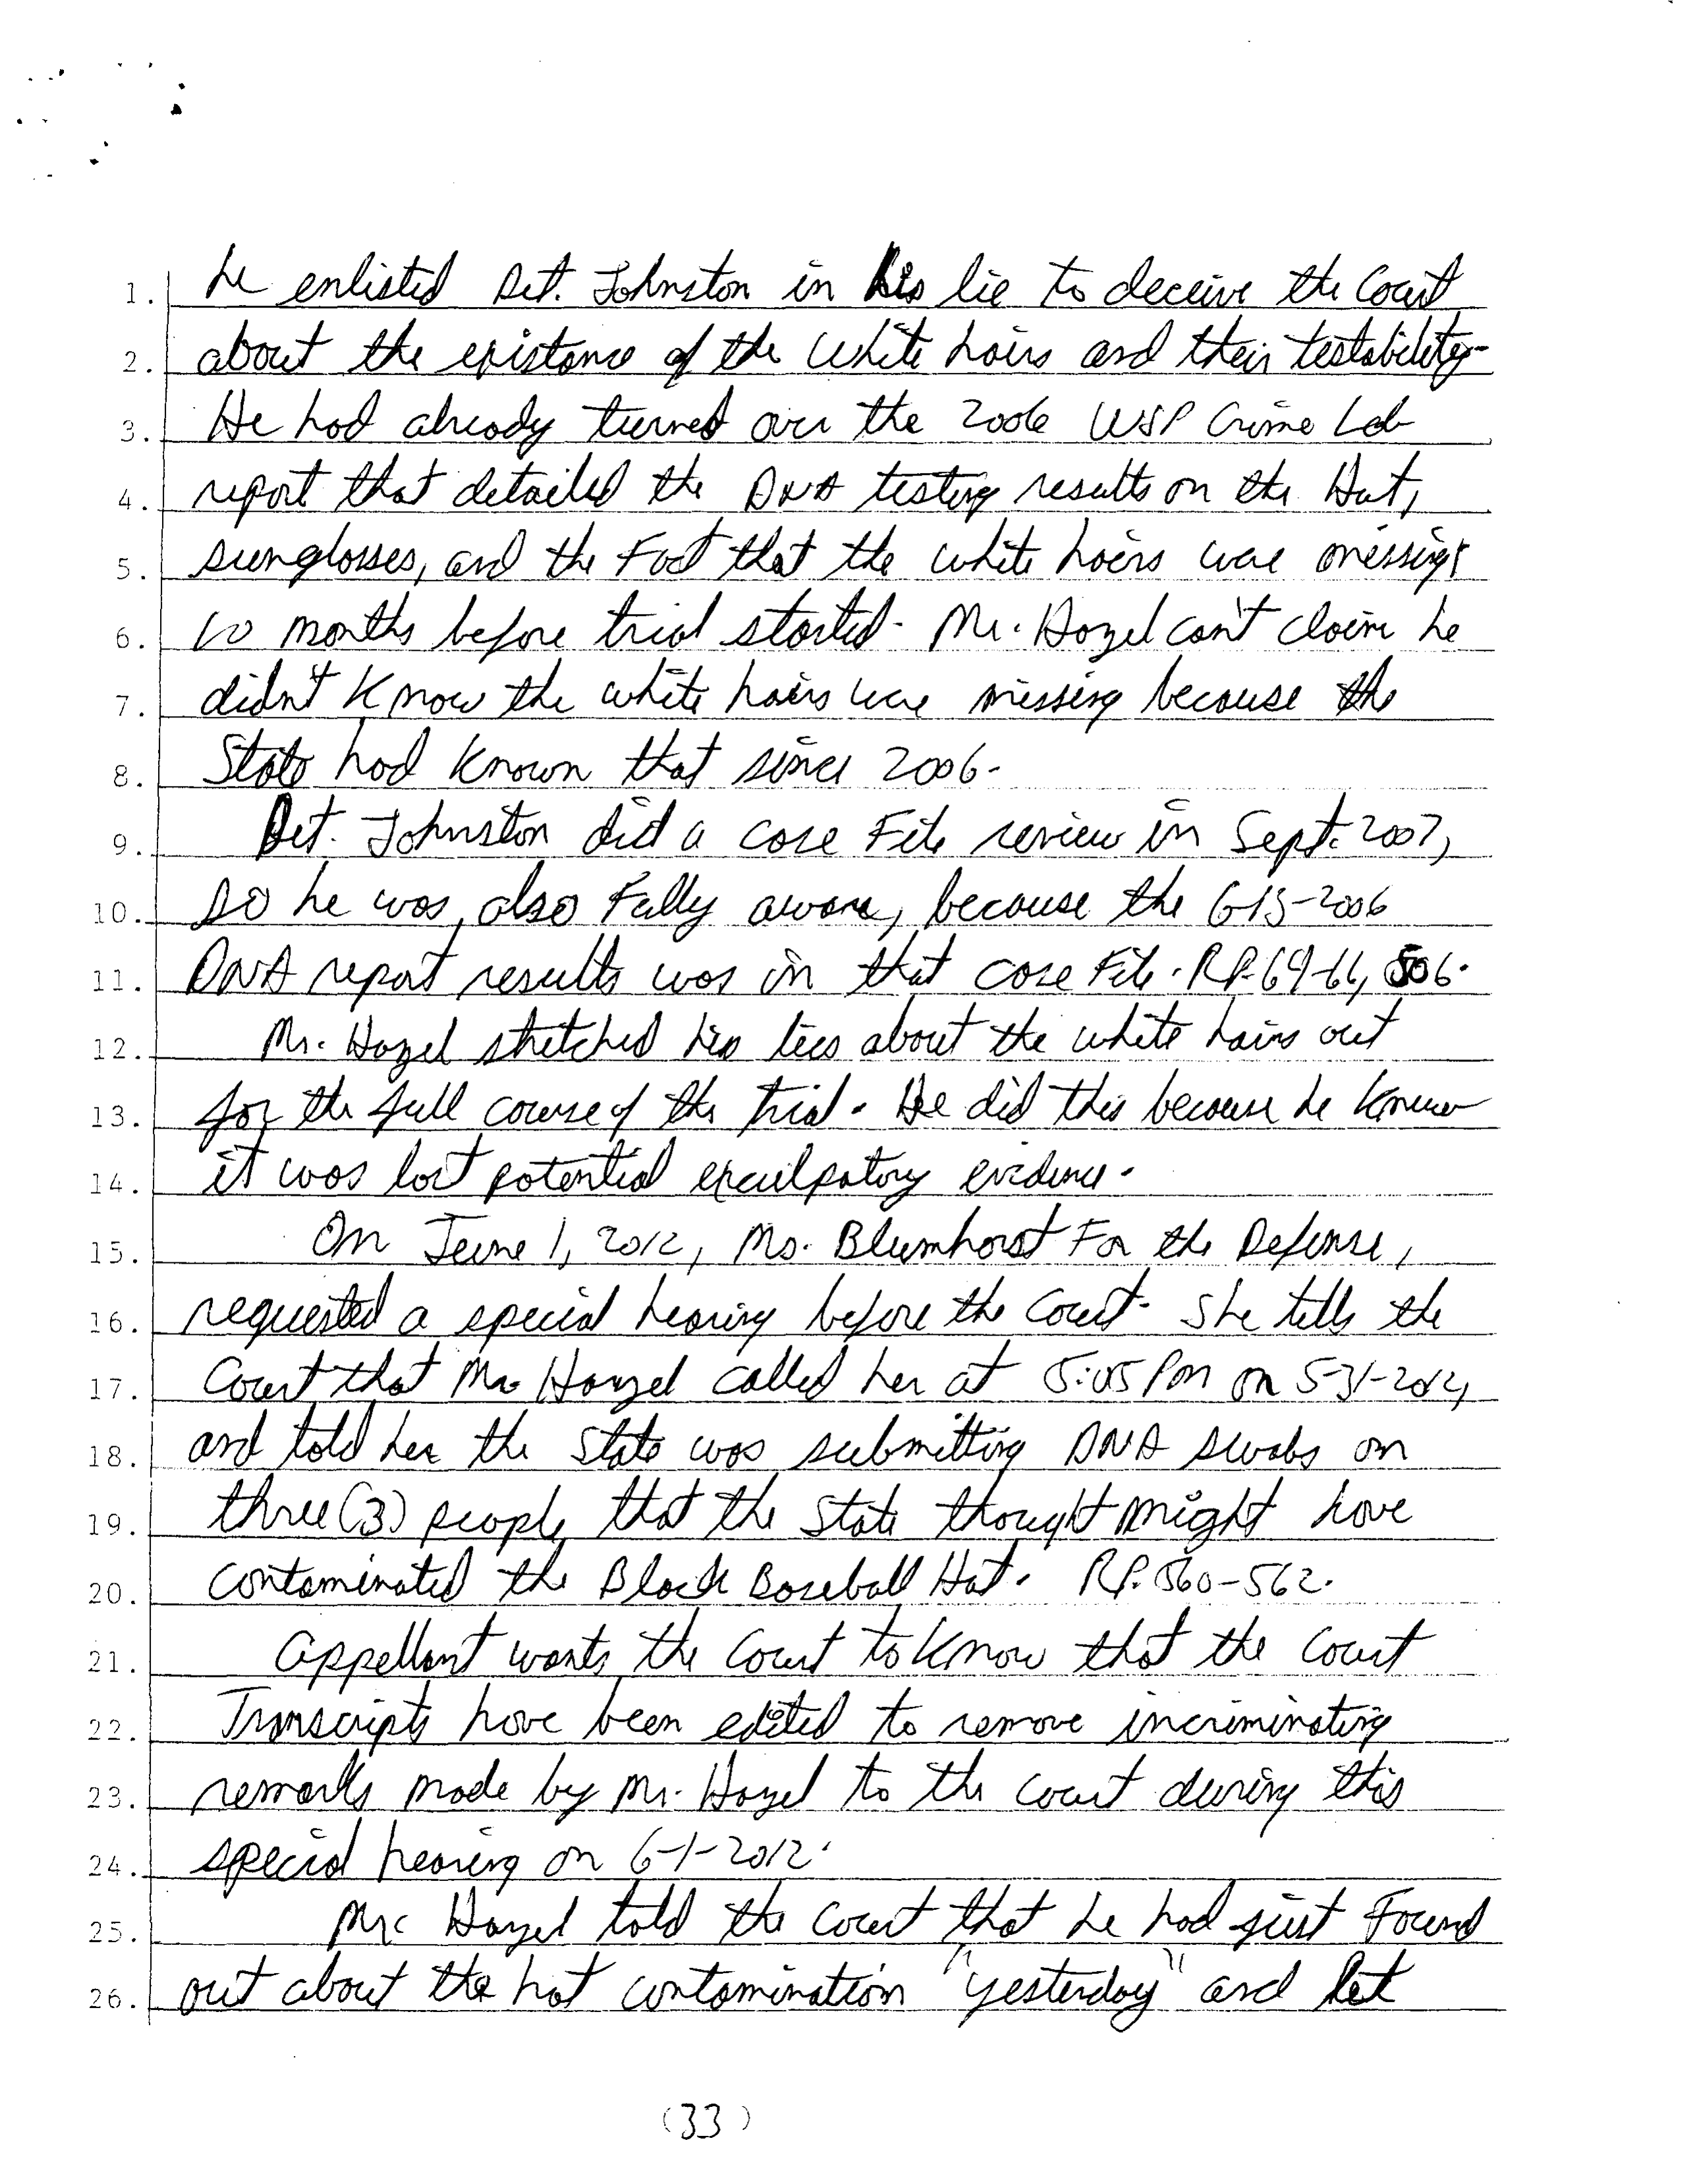 1. he enlisted Det. Johnston in his lie to deceive the Court
2. about the existance of the white hairs and their testability.
3. He had already turned over the 2006 WSP Crime Lab
4. report that detailed the DNA testing results on the Hat,
5. sunglasses, and the Fact that the white hairs were missing
6. 10 months before trial started. Mr. Hazel can't claim he
7. didn't Know the white hairs were missing because the
8. State had Known that since 2006.
9. Det. Johnston did a case File review in Sept. 2007,
10. so he was also Fully aware, because the 6-13-2006
11. DNA report results was in that case File. RP. 64-66, 506.
12. Mr. Hazel stretched his lies about the white hairs out
13. for the full course of the trial. He did this because he Knew
14. it was lost potential exculpatory evidence.
15. On June 1, 2012, Ms. Blumhorst For the Defense,
16. requested a special hearing before the Court. She tells the
17. Court that Mr. Hazel called her at 5:05 Pm on 5-31-2012,
18. and told her the State was submitting DNA swabs on
19. three (3) people that the State thought might have
20. contaminated the Black Baseball Hat. RP. 560-562.
21. Appellant wants the Court to Know that the Court
22. Transcripts have been edited to remove incriminating
23. remarks made by Mr. Hazel to the court during this
24. special hearing on 6-1-2012.
25. Mr. Hazel told the Court that he had just Found
26. out about the hat contamination "yesterday" and let
(33)